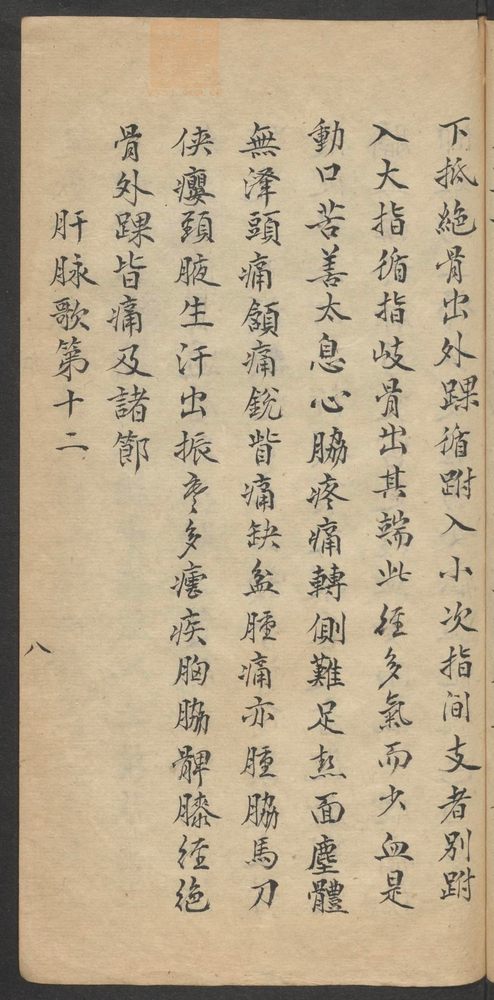 下抵絶骨出外踝循跗入小次指间支者别跗
入大指循指岐骨出其端此経多氣而少血是
動口苦善太息心脇疼痛轉側難足热面塵體
無澤頭痛頷痛銳眥痛缺盆腫痛亦腫脇馬刀
侠癭頚腋生汗出振寒多瘧疾胸脇髀膝経絶
骨外踝皆痛及諸節
肝脉歌第十二
八